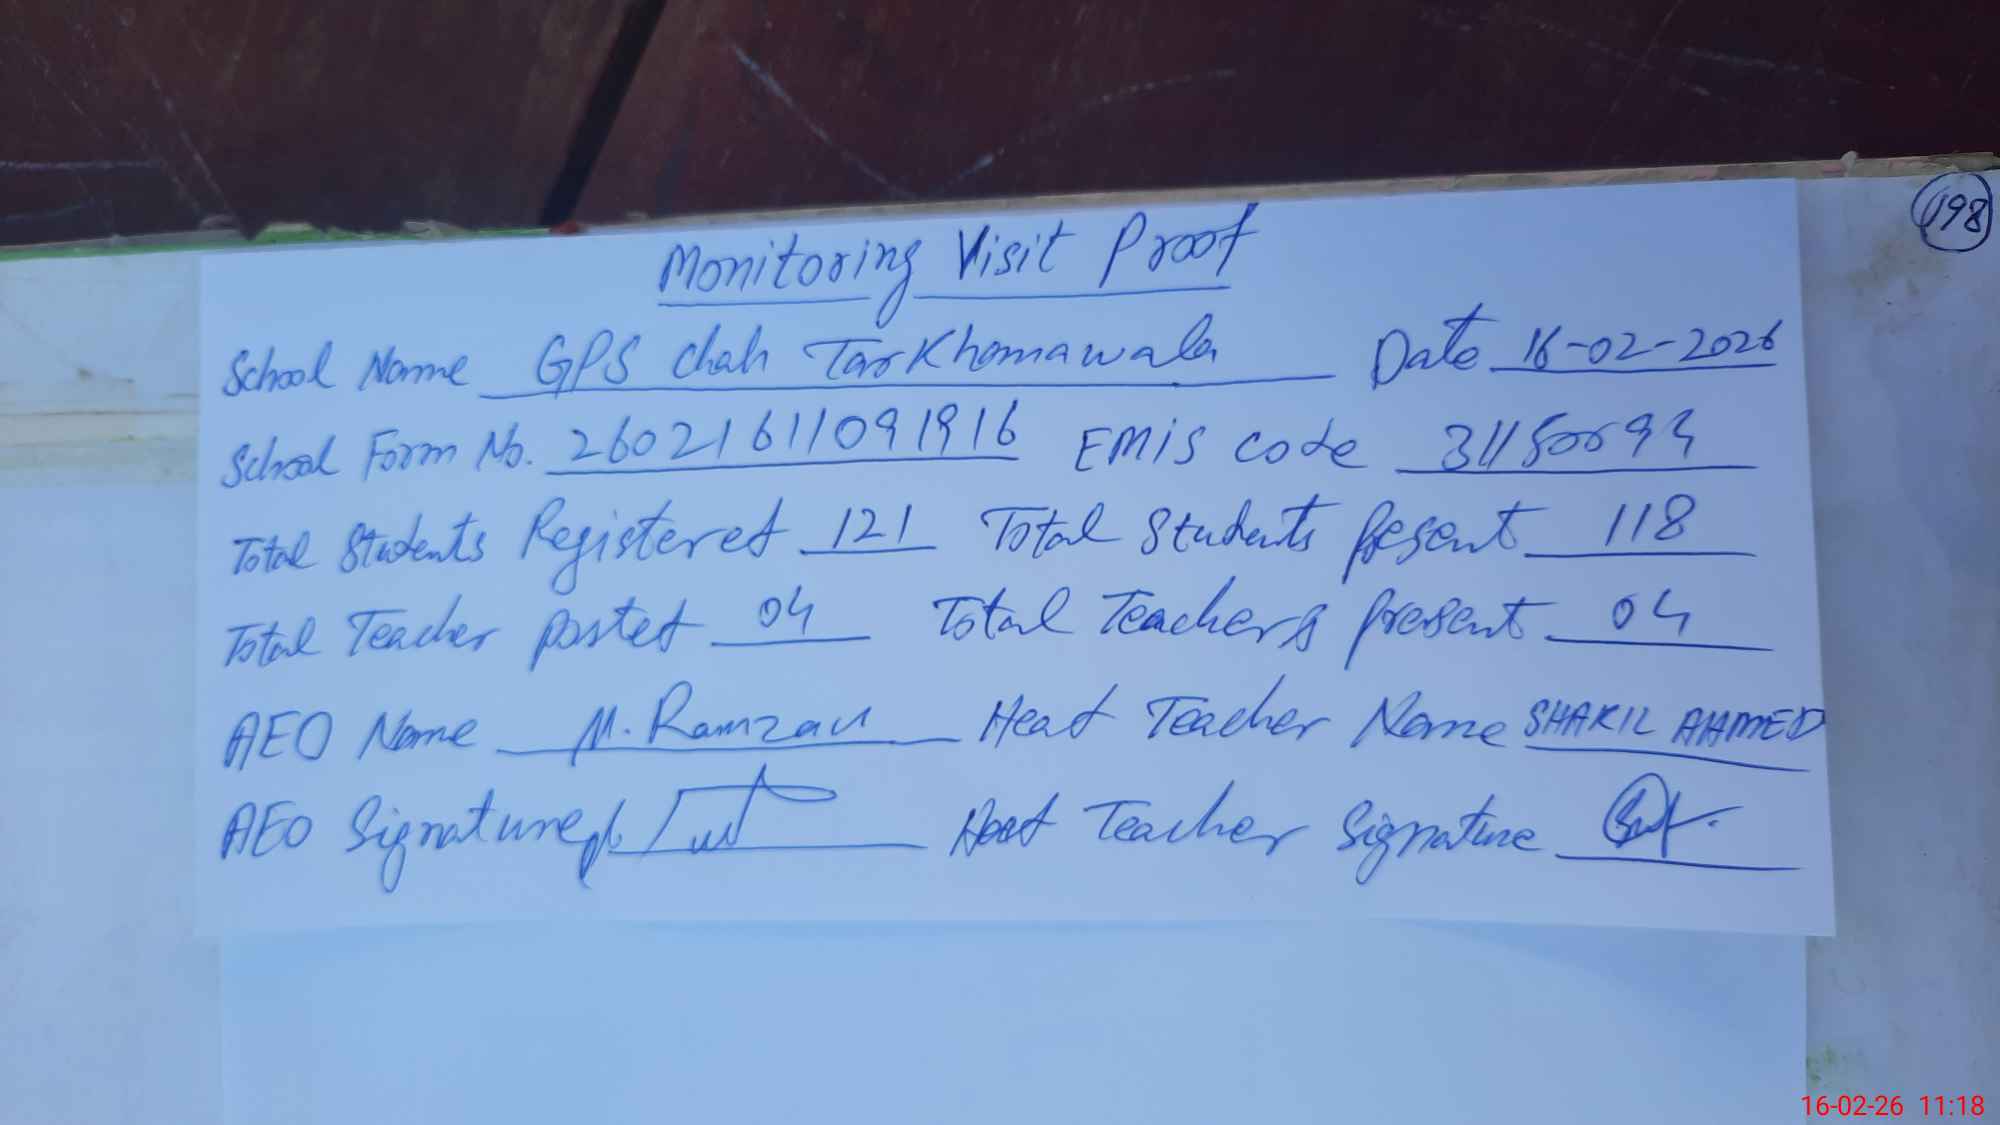 198
Monitoring Visit Proof
School Name GPS Chah TarKhomawala Date 16-02-2026
School Form No. 260216110919 16 EMIS code 31150094
Total Students Registered 121 Total Students Present 118
Total Teacher posted 04 Total Teachers present 04
AEO Name M. Ramzan Head Teacher Name SHAKIL AHMED
AEO Signature Head Teacher Signature
16-02-26 11:18